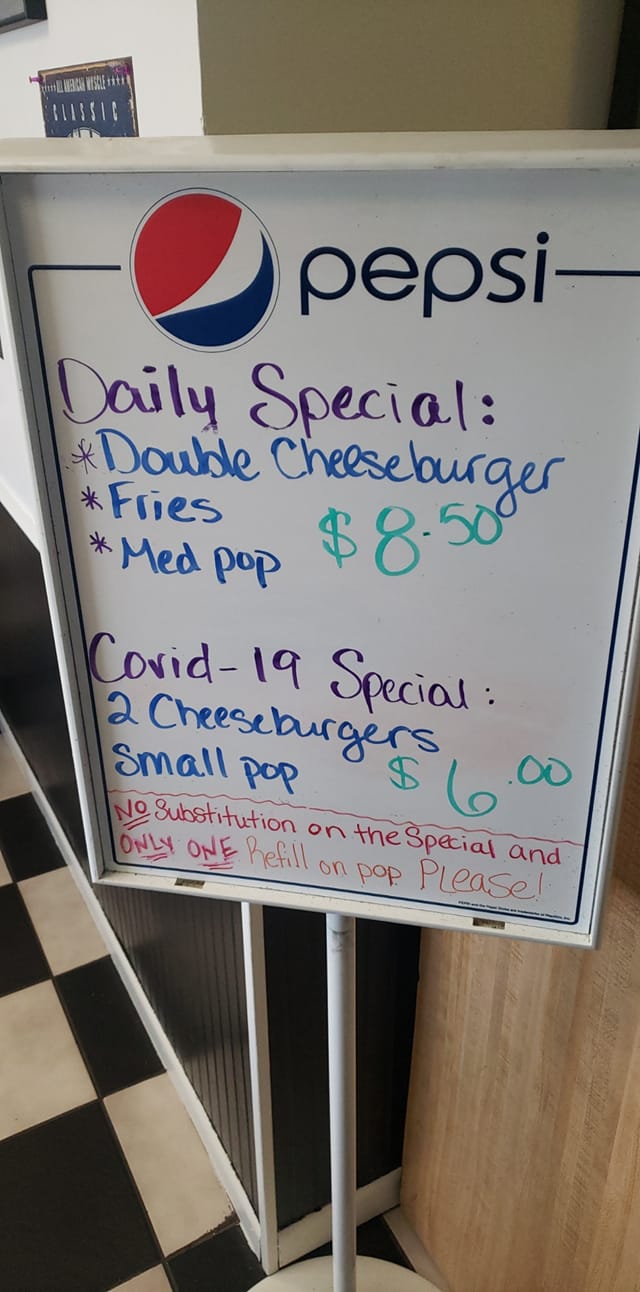 ALL AMERICAN MUSCLE
CLASSIC
pepsi
Daily Special:
*Double Cheeseburger
*Fries
*Med pop $8.50
Covid-19 Special:
2 Cheeseburgers
Small pop $6.00
NO Substitution on the Special and
ONLY ONE Refill on pop PLease!